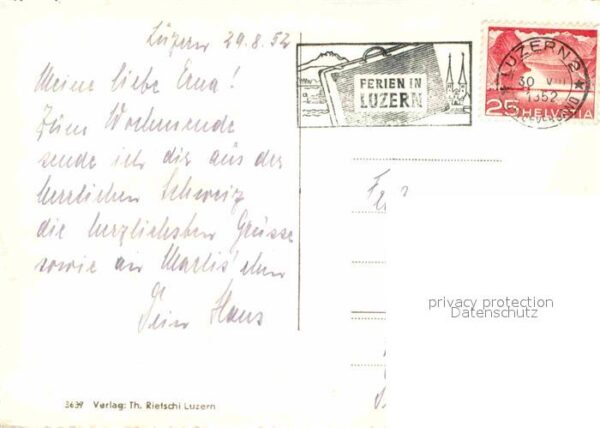 Luzern 29.8.52
Meine liebe Erna!
Zum Wochenende
sende ich dir aus der
herrlichen Schweiz
die herzlichsten Grüsse
sowie an Marlis'
Dein Hans
3639 Verlag: Th. Rietschi Luzern
FERIEN IN
LUZERN
LUZERN 2
30 VIII
1952
25 HELVETIA
privacy protection
Datenschutz